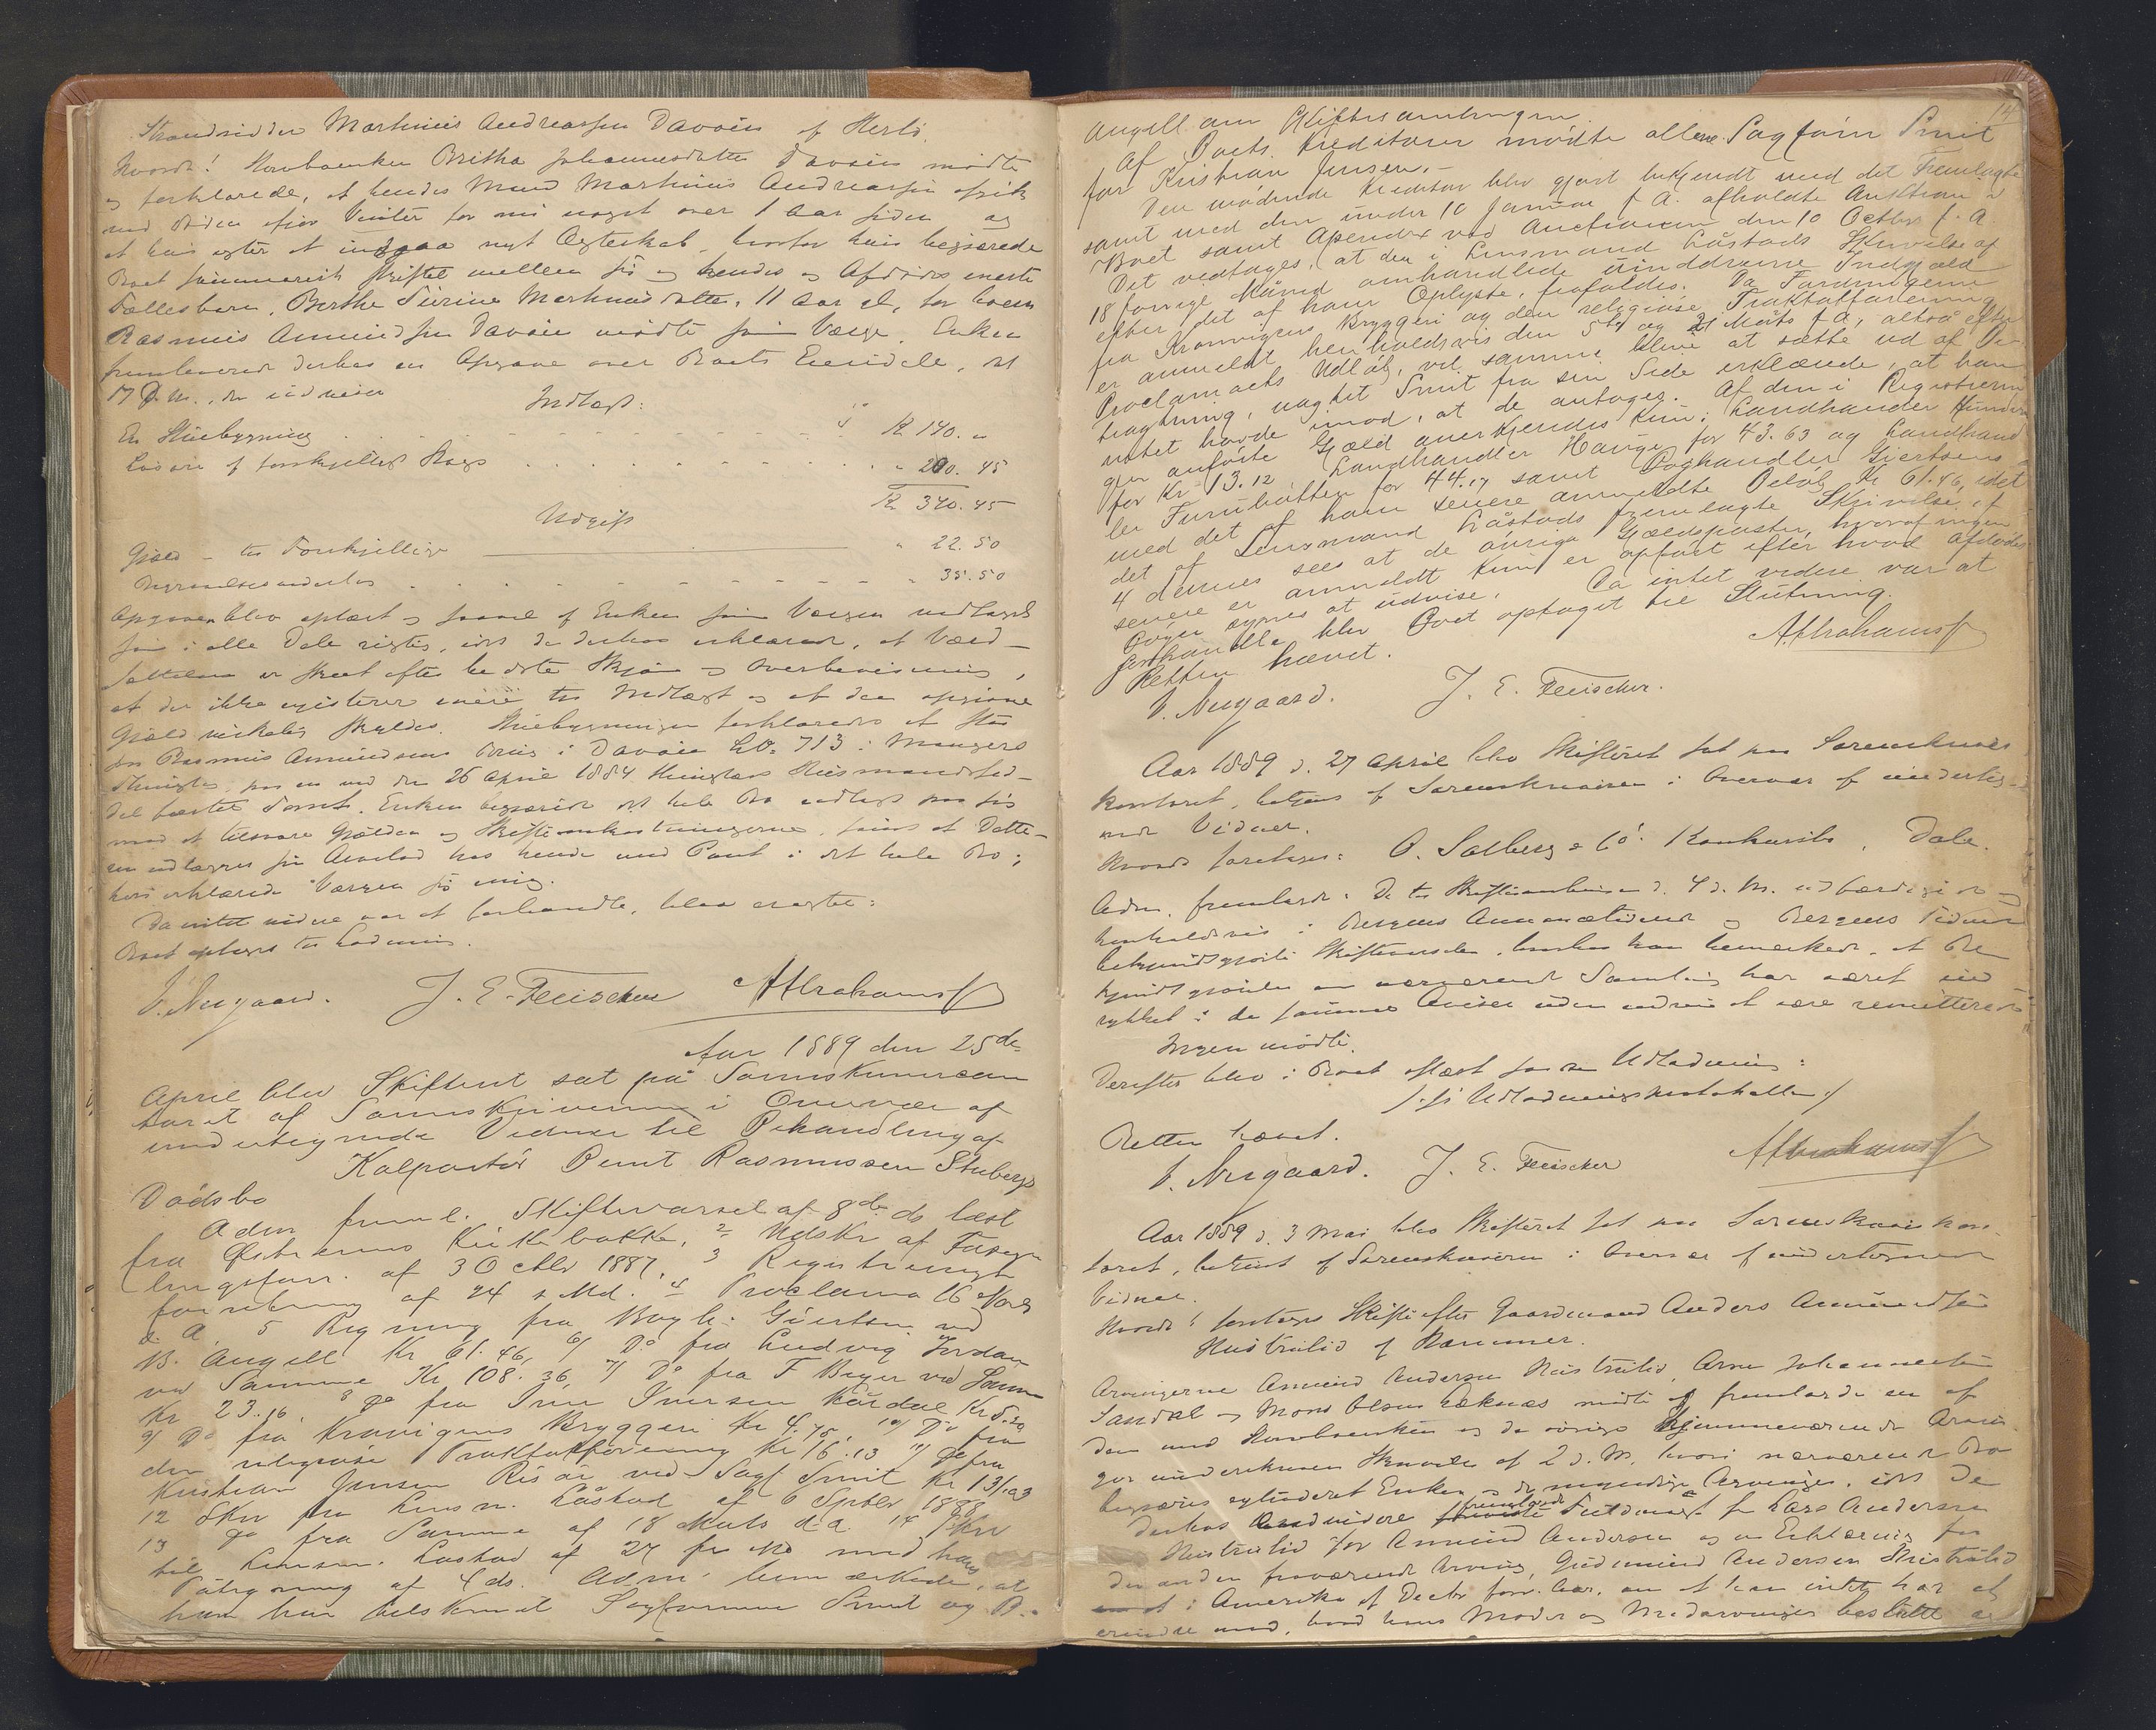 Strandsidder Martinus Andreassen Davøen af Herlø.
Hvorda! Havde Enken Britha Johannesdatter Davøen mødte
og forklarede, at hendes Mand Martinus Andreassen
ved Døden Vinter for nu noget over 1 Aar siden og
at hun agter at indgaa nyt Ægteskab, hvorfor hun begjærede
Boet summarisk skiftet mellem sig og hendes og Afdødes eneste
Fællesbarn, Berthe Sirine Martinusdatter, 11 Aar gl, for hvem
Rasmus Amundsen Davøen mødte som Værge. Enken
fremleverede derhos en Opgave over Boets Eiendele, at
17 d. M., der udviser
Indtægt:
En Stuebygning Kr 140. "
Løsøre af forskjelligt Slags " 200. 45
Kr. 340. 45
Udgift
Gjæld - til Forskjellige " 22. 50
Begravelsesudlæg " 35. 50
Opgaven blev oplæst og saavel af Enken som Værgen vedtaget
som i alle Dele rigtig, idet de derhos erklærede, at Værd-
sættelsen er skeet efter bedste Skjøn og Overbevisning,
at der ikke existerer mere til Indtægt og at den opgivne
Gjæld virkelig skyldes. Stuebygningen forklaredes at staa
paa Rasmus Amundsens Brug i Davøen LNo 713 i Mangers
Thinglag, paa en ved den 26 April 1884 thinglæst Husmandssed-
del fæstet Tomt. Enken begjærede det hele Bo udlagt paa sig
mod at tilsvare Gjælden og Skifteomkostningerne, samt at Datte-
ren udlægges sin Arvelod hos hende med Pant i det hele Bo;
heri erklærede Værgen sig enig.
Da intet videre var at forhandle, blev eragtet:
Boet optages til Lodning.
J. Nygaard. J. E. Fleischer A Abrahams
Aar 1889 den 25de
April blev Skifteret sat på Sorenskriverkon
toret af Sorenskriveren i Overvær af
undertegnede Vidner til Behandling af
Kolportør Bernt Rasmussen Stubergs
Dødsbo
Adm freml. Skiftevarsel af 8de ds læst
fra Østrems Kirkebakke, 2 Udskr af Forseg
lingsforr. af 3 Octbr 1887, 3 Registrerings
forretning af 24 s Md. 4 Proclama 16 Novbr
s. A. 5 Regning fra Bogh: Giertsen ved
B. Angell Kr 61.46, 6/ Do fra Ludvig Jordan
ved Samme Kr 108.36, 7/ Do fra F Beyer ved Samme
Kr 23.16, 8 Do fra Iver Iversen Kårdal Kr 5.20
9/ Do fra Kronvigens Bryggeri Kr 4.75, 10/ Do fra
den religiøse Traktatforening Kr 16.13 11/ Do fra
Kristian Jensen Risøe ved Sagf Smit Kr 131.03
12 Skr fra Lensm. Låstad af 6 Septbr 1888
13 Do fra Samme af 18 Marts d.A. 14 Skr
til Lensm. Låstad af 27 med hans
Påtegning af 4 ds. Adm: bemærkede, at
han har tilskrevet Sagførerne Smit og B.
14
Angell om Skiftesamlingen.
Af Boets Kreditorer mødte allene Sagfører Smit
for Kristian Jensen.-
Den mødende Kreditor blev gjort bekjendt med det Fremlagte
samt med den under 10 Januar f A. afholdte Auktion i
Boet samt Apendix ved Auctionen den 10 Octbr f. A
Det vedtages, at den i Lensmand Låstads Skrivelse af
18 forrige Måned omhandlede uinddrevne Indgjæld
efter det af ham Oplyste, frafaldes. Da Fordringerne
fra Kronvigens Bryggeri og den religiøse Traktatforening
er anmeldt henholdsvis den 5te og 21 Marts f A, altså efter
Proclamaets Udløb, vil samme blive at sætte ud af Be-
tragtning, uagtet Smit fra sin Side erklærede, at han
intet havde imod, at de antages. Af den i Registrerin
gen anførte Gjæld anerkjendes kun: Landhandler Hunder
for Kr 13.12 Landhandler Hauge for 43.63 og Landhand
ler Furubotten for 44.17 samt Boghandler Giertsens
med det af ham senere anmeldte Beløb Kr 61.46, idet
det af Lensmand Låstads fremlagte Skrivelse af
4 dennes sees at de øvrige Gjældsposter, hvoraf ingen
senere er anmeldt kun er opført efter hvad Afdødes
Bøger synes at udvise. Da intet videre var at
forhandle blev Boet optaget til Slutning.
Retten hævet. A Abrahams
J. Nygaard. J. E. Fleischer.
Aar 1889 d. 27 April blev Skifteret sat paa Sorenskriver
kontoret, betjent af Sorenskriveren i Overvær af underteg-
nede Vidner.
Hvorda foretages: O. Solberg & Co' Konkursbo, Dale.
Adm. fremlagde: De til Skiftesamlingen d. 4 d. M. udfærdigede
henholdsvis i Bergens Annoncetidende og Bergens Tidende
bekjendtgjorte Skiftevarsler, hvorhos han bemærkede, at Be
kjendtgjørelse om nærværende Samling har været ind
rykket i de samme Aviser uden endnu at være remitterede.
Ingen mødte.
Derefter blev i Boet oplæst saadan Udlodning:
/: se Udlodningsprotokollen :/
Retten hævet.
J. Nygaard. J. E. Fleischer A Abrahams
Aar 1889 d. 3 Mai blev Skifteret sat paa Sorenskriverkon
toret, betjent af Sorenskriveren i Overvær af undertegnede
Vidner.
Hvorda: foretages Skifte efter Gaardmand Anders Amundsen
Hustrulid af Hammer.
Arvingerne Amund Andersen Hustrulid, Arne Johannesen
Sandal og Mons Olsen Læknæs mødte og fremlagde en af
dem med Havde Enken og de øvrige hjemmeværende Arvin
ger underskreven Skrivelse af 2 d. M, hvori nærværende Bo
begjæres extraderet Enken og de myndige Arvinger, idet de
derhos videre fremlagde Fuldmagt fra Lars Andersen
Hustrulid for Amund Andersen og en Erklæring fra
den anden fraværende Arving, Gudmund Andersen Hustrulid
i Amerika af Decbr forr. Aar, om at han intet har at
erindre mod, hvad hans Moder og Medarvinger beslutte